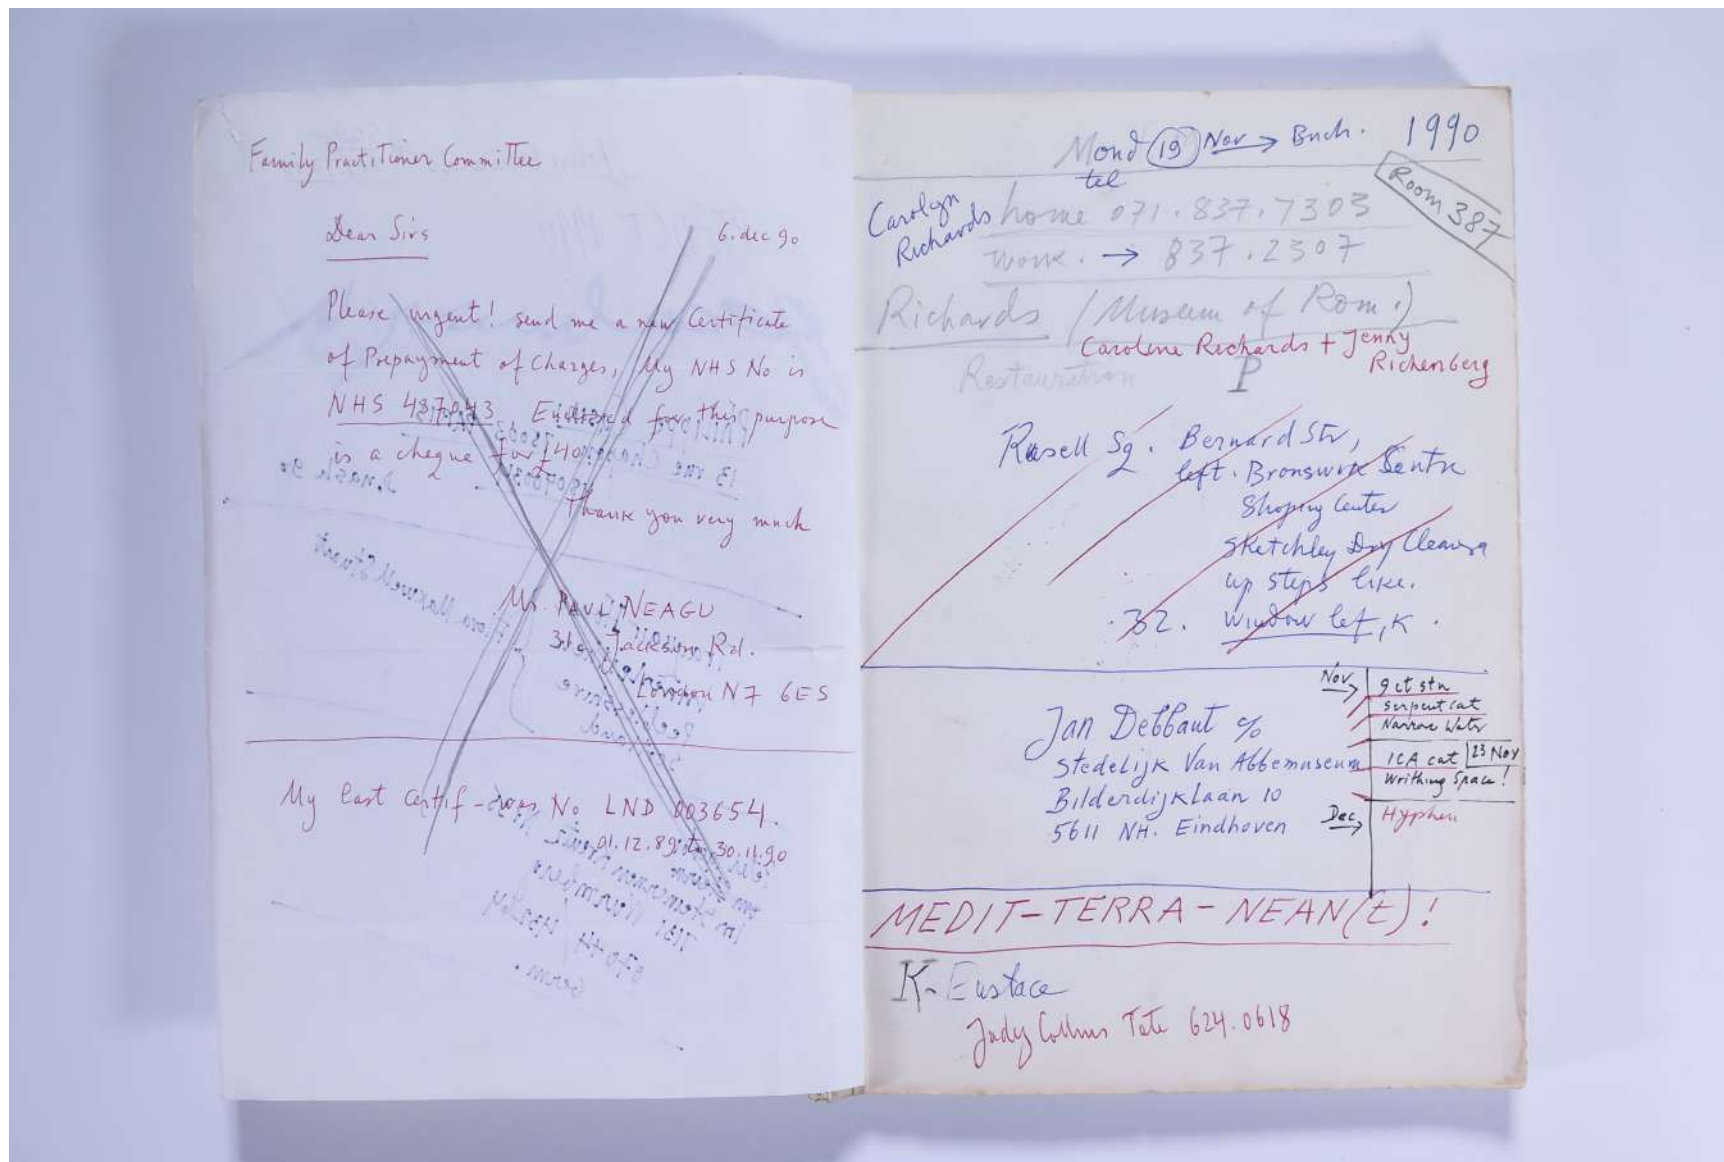 Family Practitioner Committee
Dear Sirs
6. dec 90
Please urgent! send me a new Certificate
of Prepayment of Charges, My NHS No is
NHS 487943 Enclosed for this purpose
is a cheque for £40
Thank you very much
Mr. PAUL NEAGU
31 Jackson Rd.
London N7 6ES
My last certif- No LND 003654.
01.12.89 to 30.11.90
Mond 19 Nov → Buch. 1990
tel
Room 387
Carolyn
Richards
home 071.837.7303
work. → 837.2307
Richards (Museum of Rom.)
Caroline Richards + Jenny
Richenberg
Restauration
P
Rusell Sq. Bernard Str,
left. Bronswik Sentre
Shoping Center
Sketchley Dry Cleaners
up steps like.
32. Window left, K.
Nov
9 ct stn
serpent cat
Narrow Water
Jan Debbaut c/o
Stedelijk Van Abbemuseum
Bilderdijklaan 10
5611 NH. Eindhoven
ICA cat 23 Nov
Writhing Space!
Dec
Hyphen
MEDIT-TERRA-NEAN(t)!
K- Eustace
Judy Collins Tate 624.0618